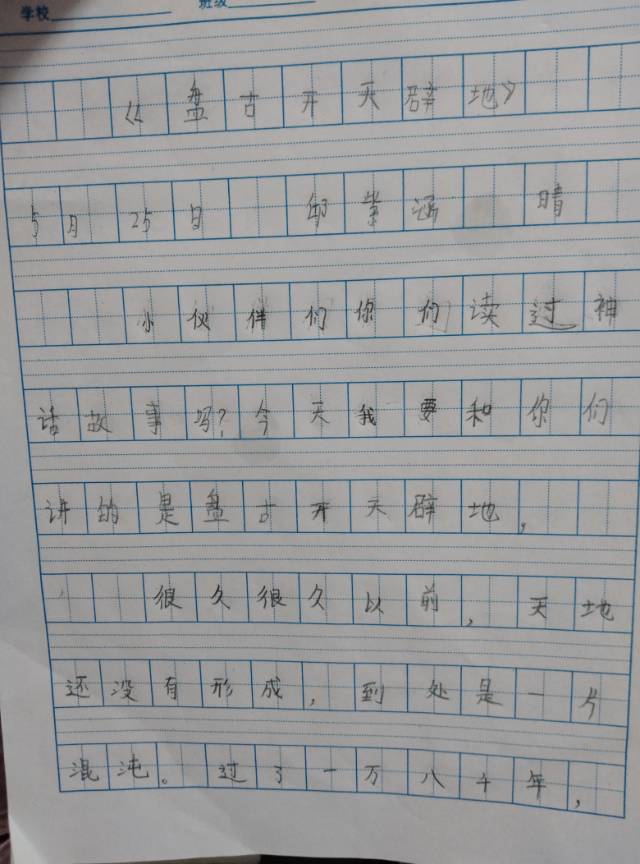 学校 班级
《盘古开天辟地》
5月25日 邹紫涵 晴
小伙伴们你们读过神
话故事吗?今天我要和你们
讲的是盘古开天辟地,
很久很久以前,天地
还没有形成,到处是一片
混沌。过了一万八千年,